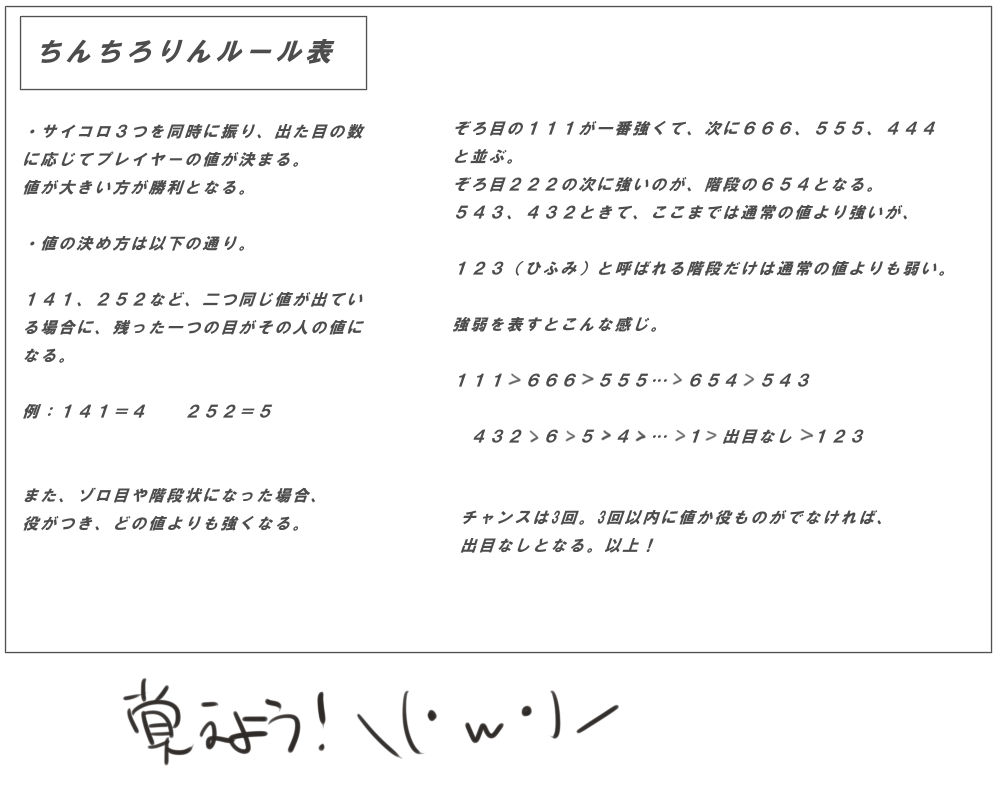 ちんちろりんルール表
・サイコロ３つを同時に振り、出た目の数
に応じてプレイヤーの値が決まる。
値が大きい方が勝利となる。
・値の決め方は以下の通り。
１４１、２５２など、二つ同じ値が出てい
る場合に、残った一つの目がその人の値に
なる。
例：１４１＝４　　２５２＝５
また、ゾロ目や階段状になった場合、
役がつき、どの値よりも強くなる。
ぞろ目の１１１が一番強くて、次に６６６、５５５、４４４
と並ぶ。
ぞろ目２２２の次に強いのが、階段の６５４となる。
５４３、４３２ときて、ここまでは通常の値より強いが、
１２３（ひふみ）と呼ばれる階段だけは通常の値よりも弱い。
強弱を表すとこんな感じ。
１１１＞６６６＞５５５…＞６５４＞５４３
４３２＞６＞５＞４＞…＞１＞出目なし＞１２３
チャンスは3回。3回以内に値か役ものがでなければ、
出目なしとなる。以上！
覚えよう！＼(・w・)／